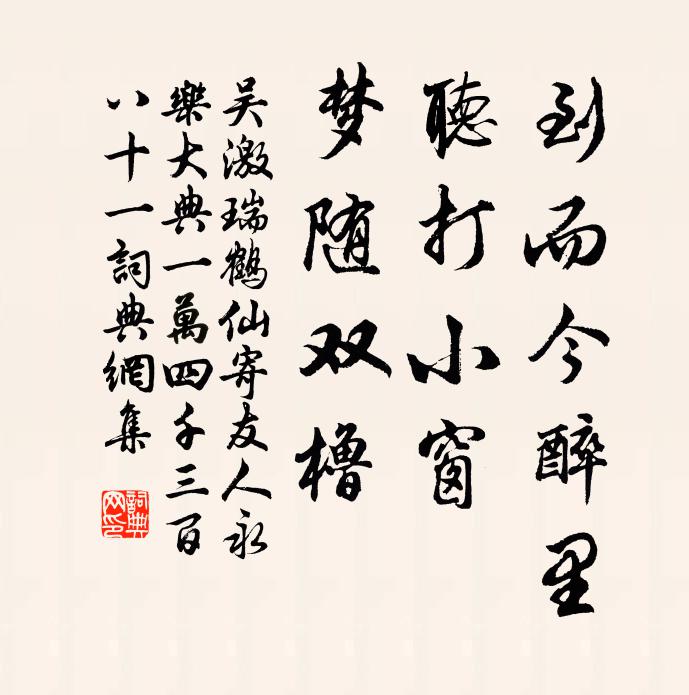 到而今醉里
聽打小窗
梦随双橹
吴激瑞鶴仙寄友人永
樂大典一萬四千三百
八十一詞典網集
詞典
网印